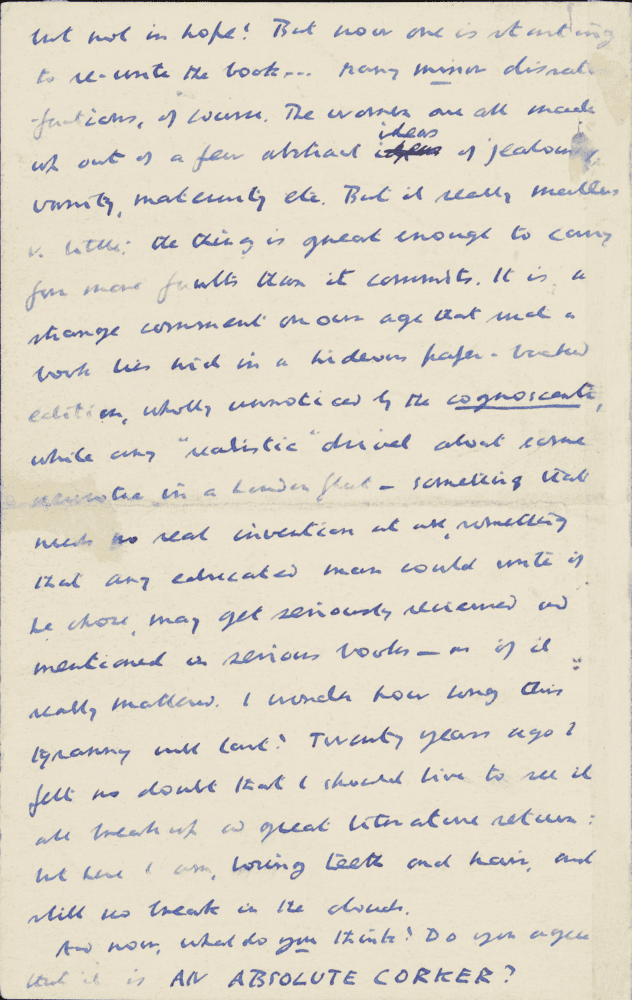 but not in hope! But now one is starting
to re-write the book... Many minor dissatis-
-factions, of course. The women are all made
up out of a few abstract ideas of jealousy,
vanity, maternity etc. But it really matters
v. little: the thing is great enough to carry
far more faults than it commits. It is a
strange comment on our age that such a
book lies hid in a hideous paper-backed
edition, wholly unnoticed by the cognoscenti,
while any "realistic" drivel about some
neurotic in a London flat - something that
needs no real invention at all, something
that any educated man could write if
he chose, may get seriously reviewed and
mentioned in serious books - as if it
really mattered. I wonder how long this
tyranny will last? Twenty years ago I
felt no doubt that I should live to see it
all break up and great literature return:
but here I am, losing teeth and hair, and
still no break in the clouds.
And now, what do you think? Do you agree
that it is AN ABSOLUTE CORKER?